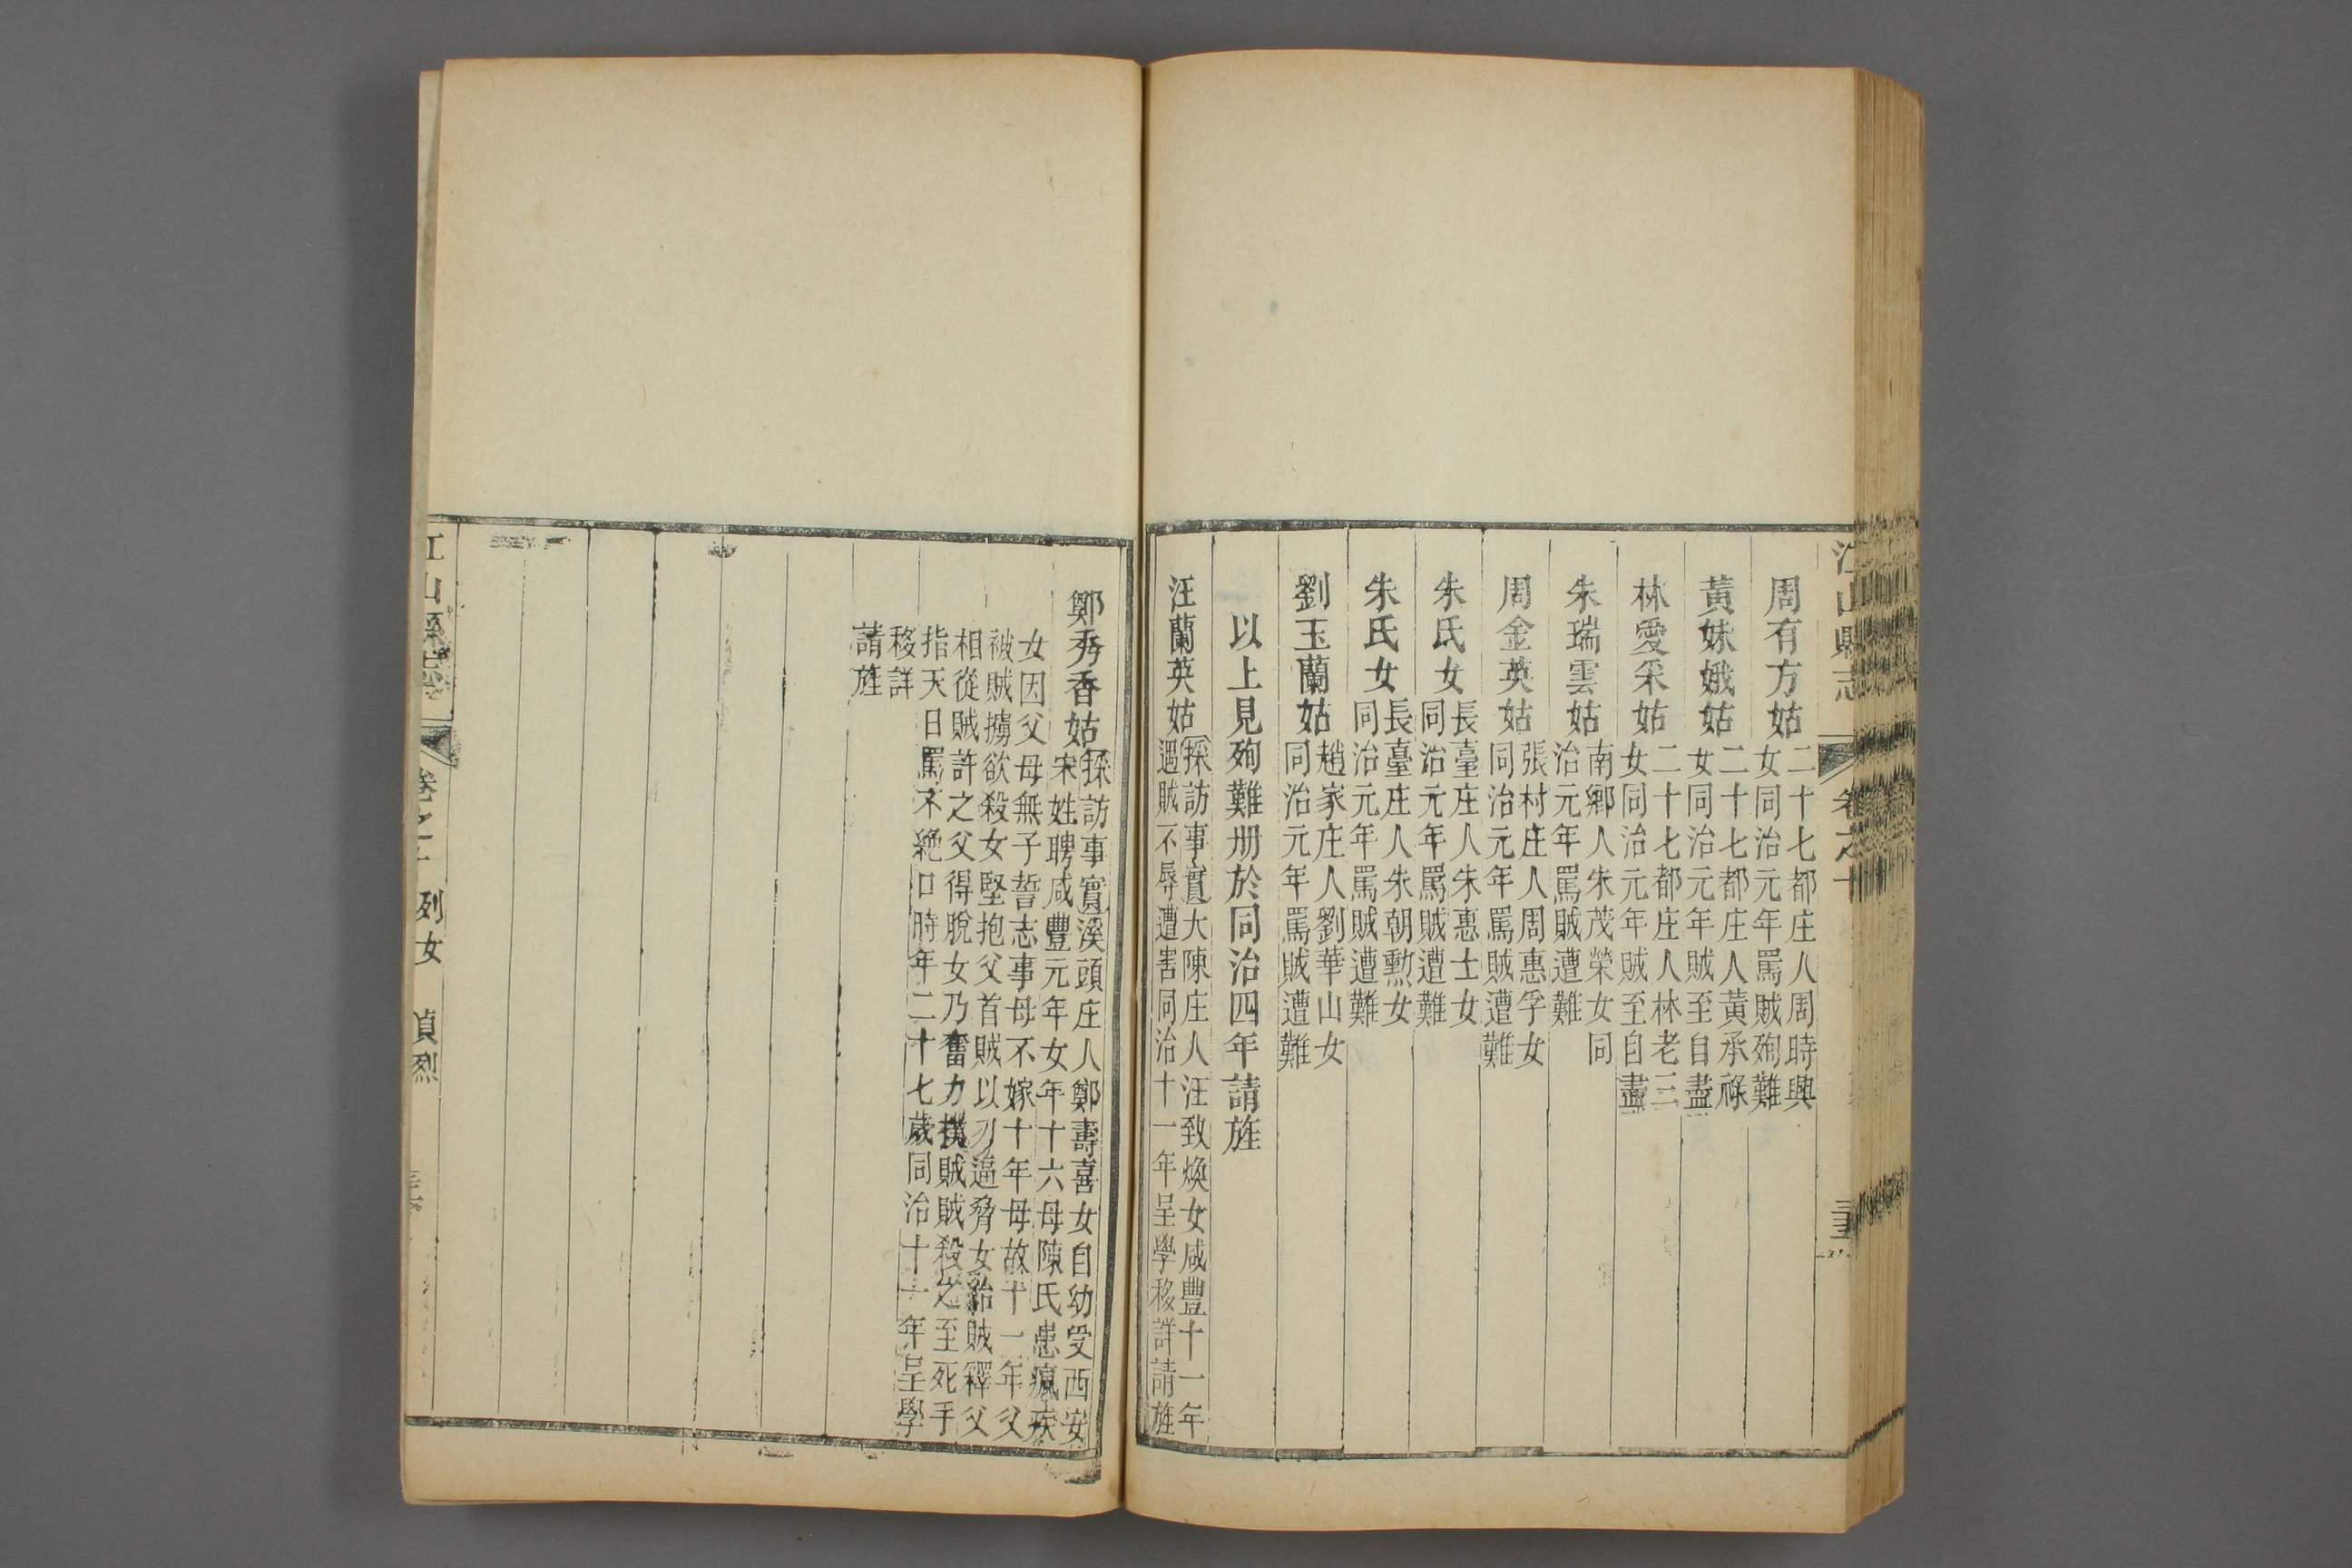 江山縣志
卷之十
周有方姑
二十七都庄人周時興
女同治元年罵賊殉難
黃妹娥姑
二十七都庄人黃承祿
女同治元年賊至自盡
林愛釆姑
二十七都庄人林老三
女同治元年賊至自盡
朱瑞雲姑
南鄉人朱茂榮女同
治元年罵賊遭難
周金英姑
張村庄人周惠孚女
同治元年罵賊遭難
朱氏女
長臺庄人朱惠士女
同治元年罵賊遭難
朱氏女
長臺庄人朱朝勳女
同治元年罵賊遭難
劉玉蘭姑
趙家庄人劉華山女
同治元年罵賊遭難
以上見殉難册於同治四年請旌
汪蘭英姑
採訪事實大陳庄人汪致煥女咸豐十一年
遇賊不辱遭害同治十一年呈學移詳請旌
鄭秀香姑
採訪事實溪頭庄人鄭壽喜女自幼受西安
宋姓聘咸豐元年女年十六母陳氏患瘋疾
女因父母無子誓志事母不嫁十年母故十一年父
被賊擄欲殺女堅抱父首賊以刃逼脅女紿賊釋父
相從賊許之父得脫女乃奮力撲賊賊殺之至死手
指天日罵不絕口時年二十七歲同治十一年呈學
移詳
請旌
江山縣志
卷之十
列女 貞烈